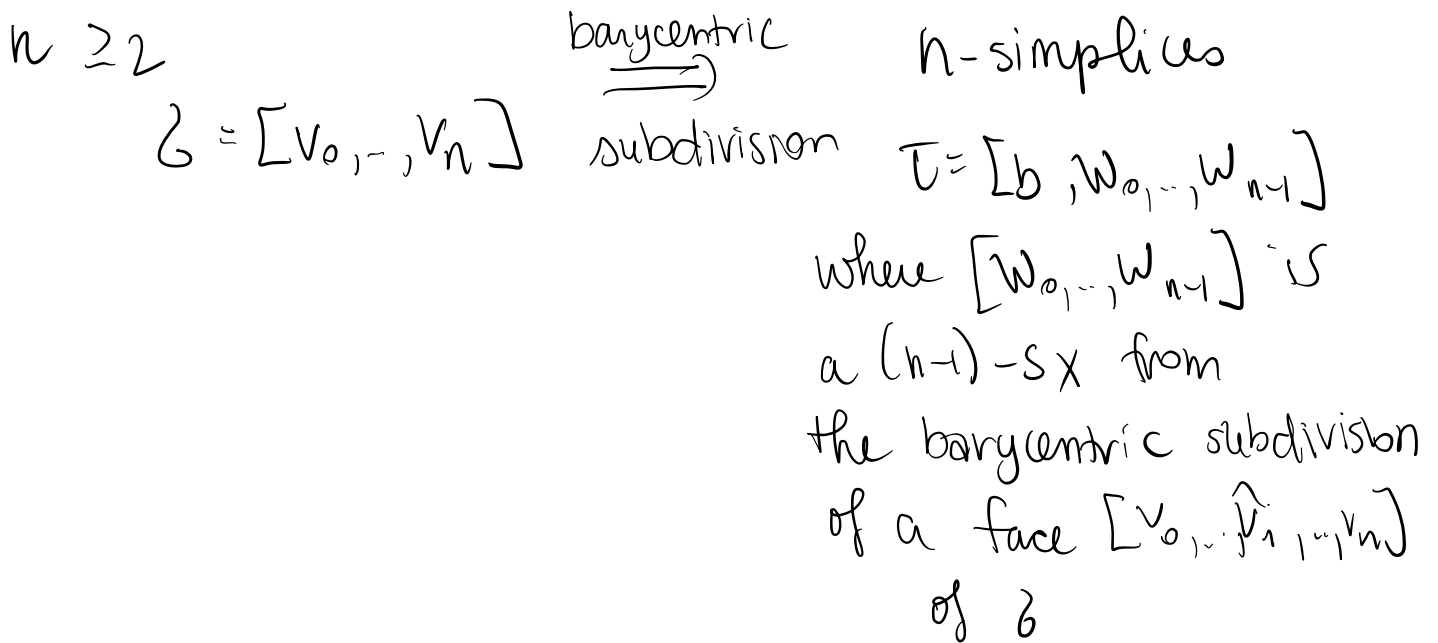 n ≥ 2
σ = [v₀, .., vₙ]
barycentric
⟹
subdivision
n-simplices
τ = [b, w₀, .., wₙ₋₁]
where [w₀, .., wₙ₋₁] is
a (n-1)-sx from
the barycentric subdivision
of a face [v₀, .., v̂ᵢ, .., vₙ]
of σ